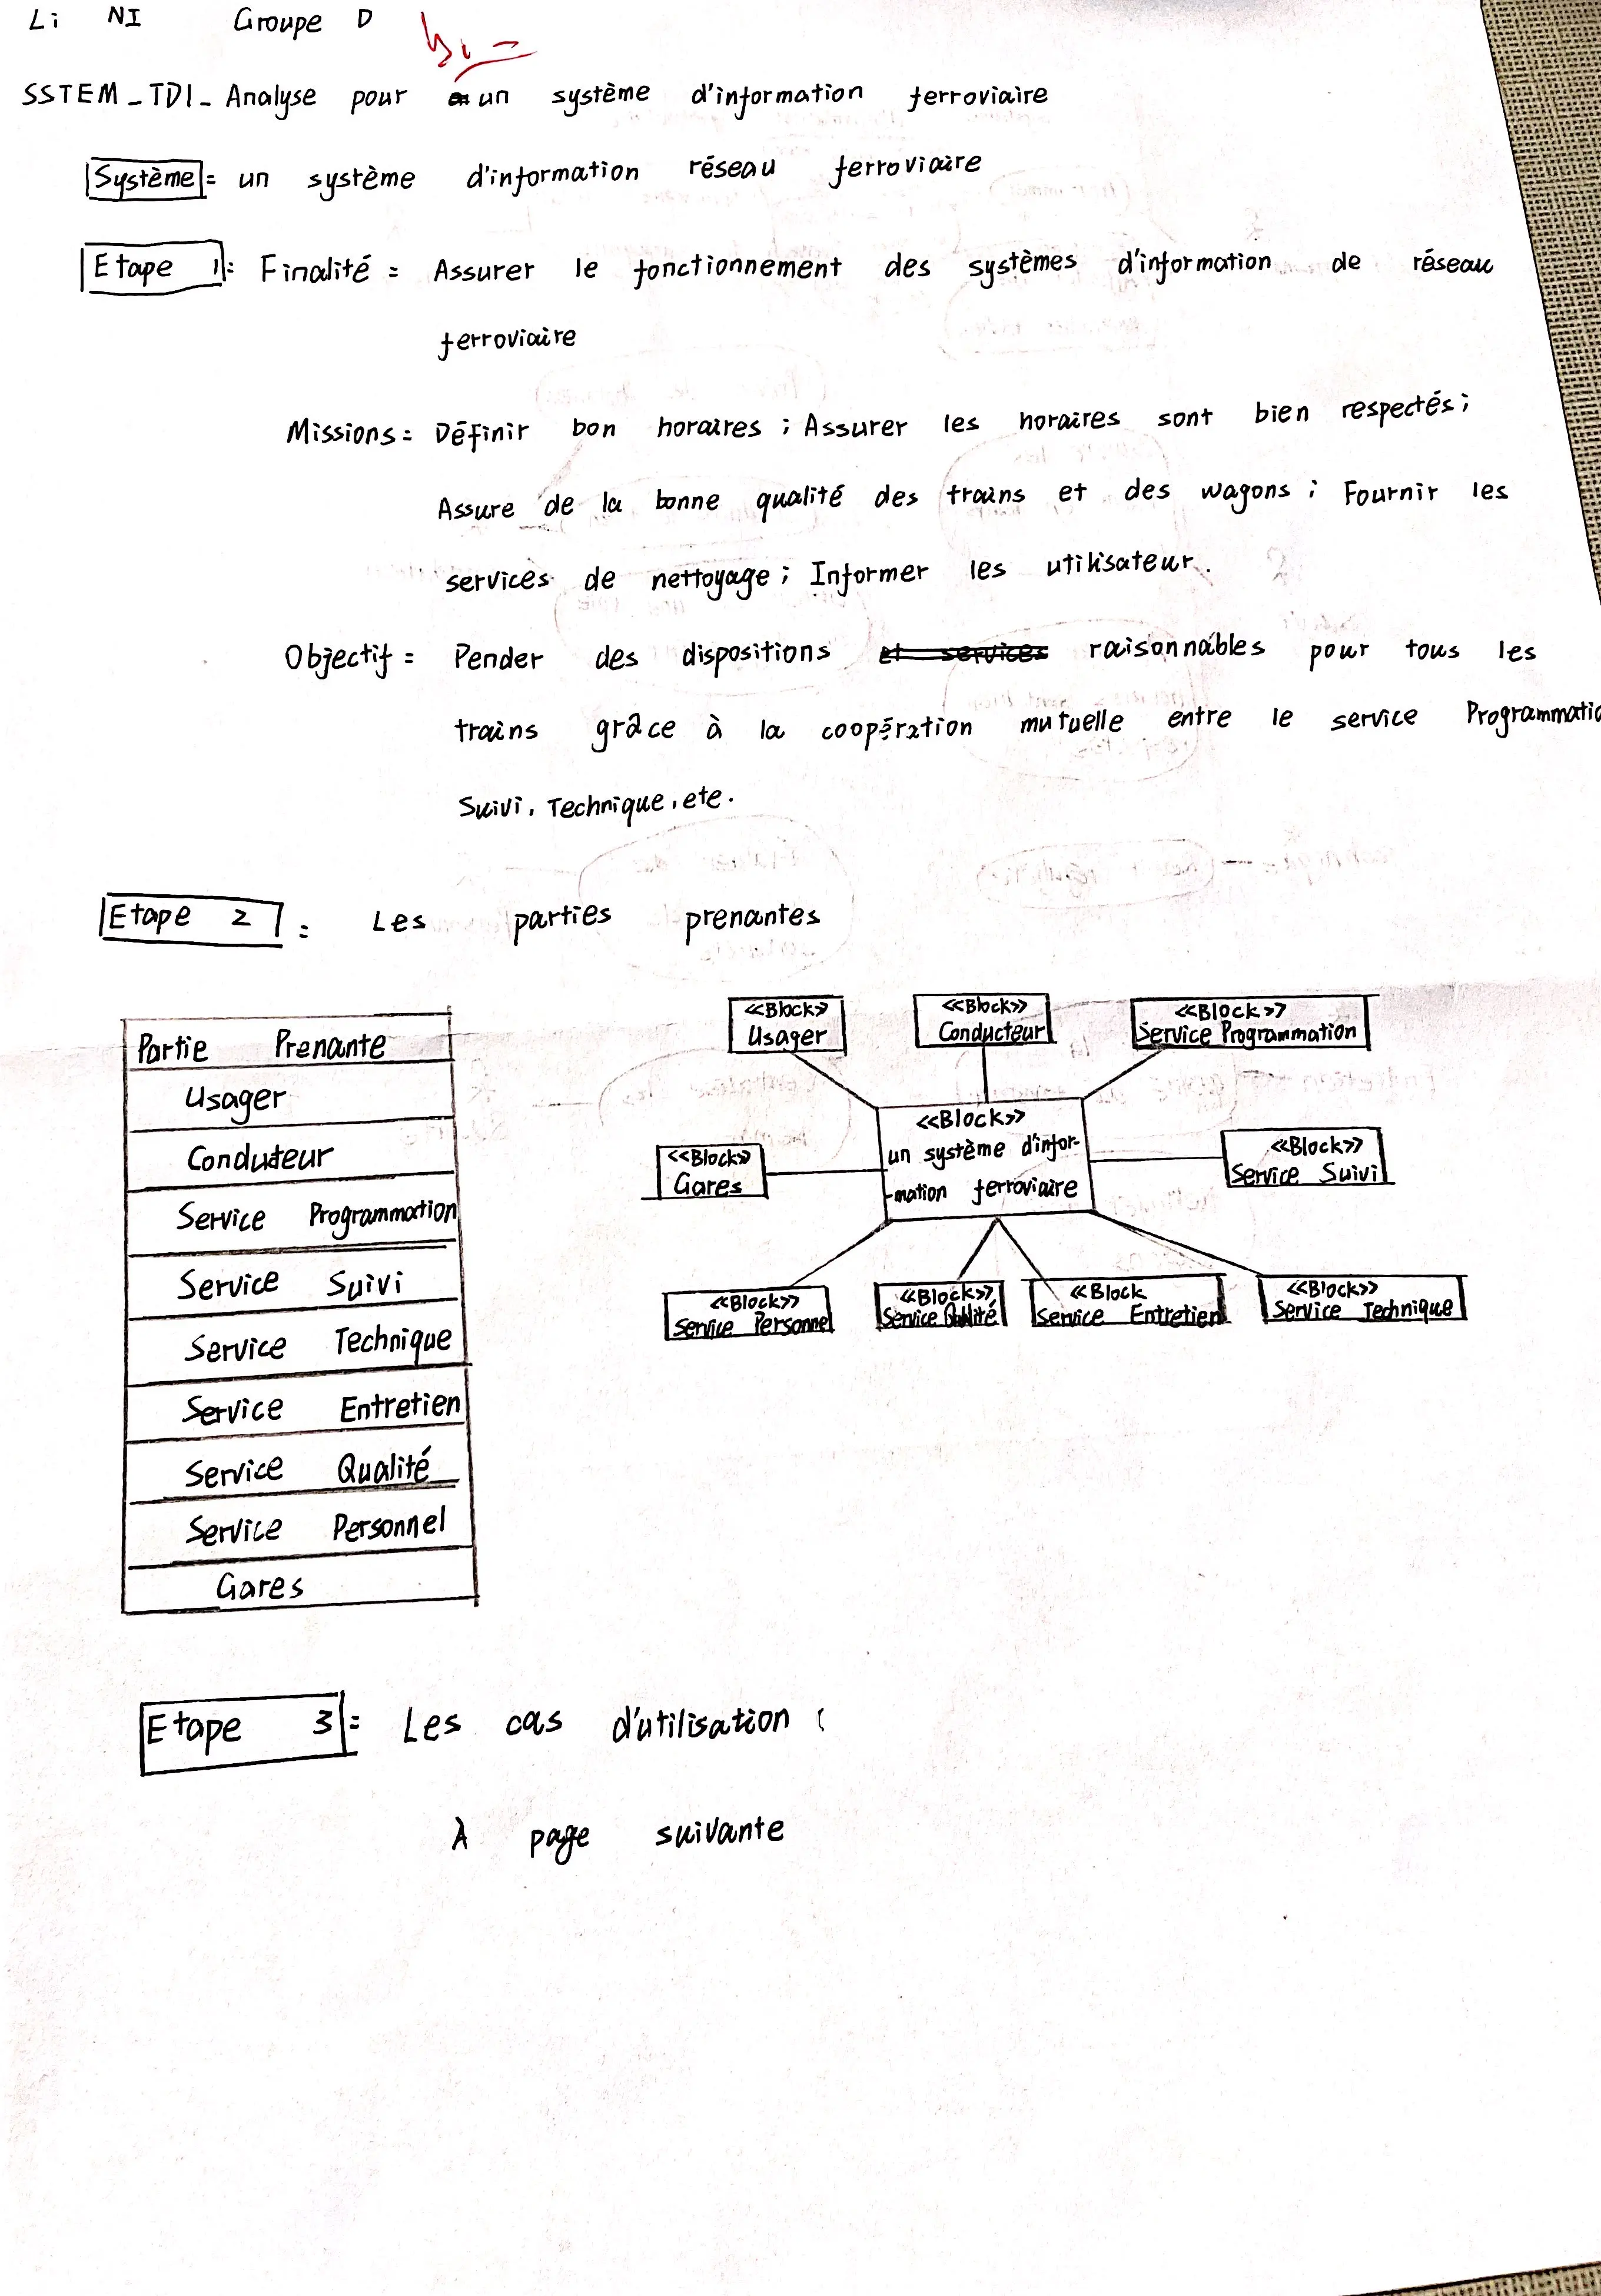 Li NI Groupe D
SSTEM_TD1_Analyse pour un système d'information ferroviaire
Système = un système d'information réseau ferroviaire
Etape 1 = Finalité = Assurer le fonctionnement des systèmes d'information de réseau
ferroviaire
Missions = Définir bon horaires ; Assurer les horaires sont bien respectés ;
Assure de la bonne qualité des trains et des wagons ; Fournir les
services de nettoyage ; Informer les utilisateur.
Objectif = Pender des dispositions et services raisonnables pour tous les
trains grâce à la coopération mutuelle entre le service Programmatio
Suivi, Technique, etc.
Etape 2 = Les parties prenantes
Partie Prenante
Usager
Conducteur
Service Programmation
Service Suivi
Service Technique
Service Entretien
Service Qualité
Service Personnel
Gares
<<Block>>
Usager
<<Block>>
Conducteur
<<Block>>
Service Programmation
<<Block>>
Gares
<<Block>>
un système d'infor-
-mation ferroviaire
<<Block>>
Service Suivi
<<Block>>
Service Personnel
<<Block>>
Service Qualité
<<Block
Service Entretien
<<Block>>
Service Technique
Etape 3 = Les cas d'utilisation :
À page suivante